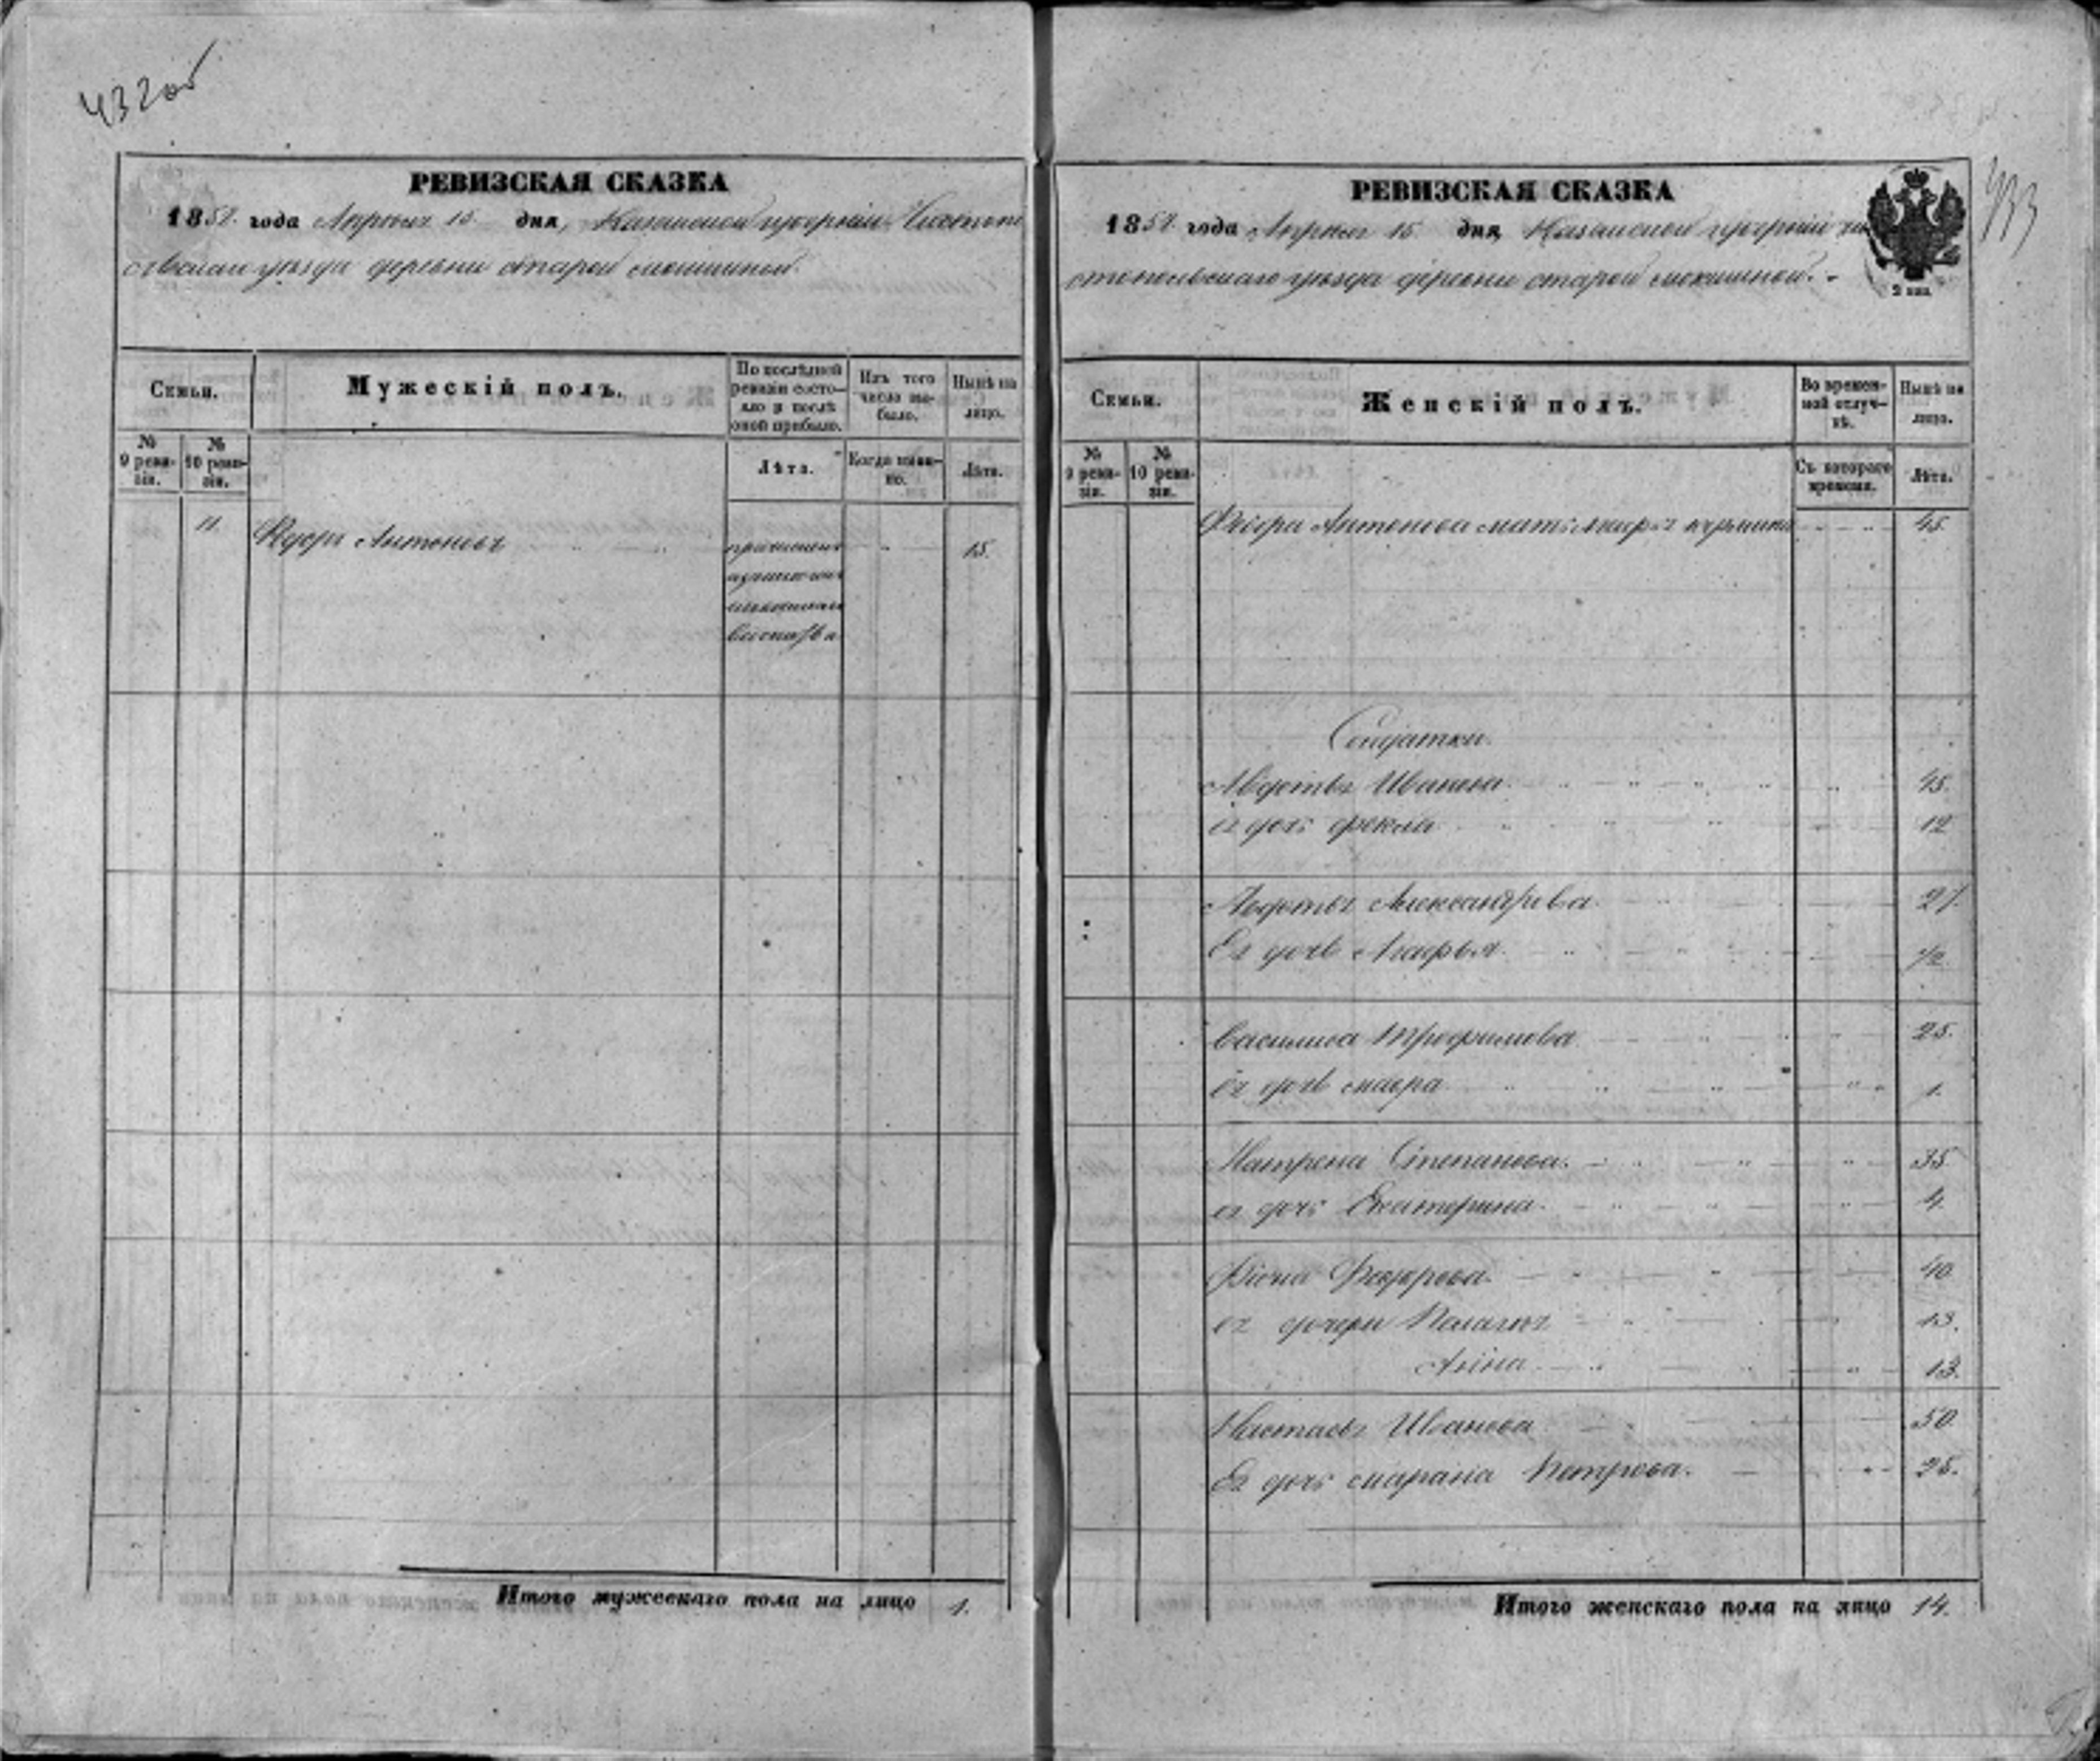 432об
РЕВИЗСКАЯ СКАЗКА
1858 года Апреля 15 дня, Казанской губернии Чистопо
уезда деревни старой
Семьи.
Мужескій полъ.
По послѣдней ревизіи состояло и послѣ оной прибыло.
Изъ того числа выбыло.
Нынѣ на лицо.
№ 9 ревизіи.
№ 10 ревизіи.
Лѣта.
Когда именно.
Лѣта.
11.
Антоновъ
15.
Итого мужескаго пола на лицо 1.
433
РЕВИЗСКАЯ СКАЗКА
1858 года Апреля 15 дня, Казанской губернии чи
стопольскаго уезда деревни старой
2 коп.
Семьи.
Женскій полъ.
Во временной отлучкѣ.
Нынѣ на лицо.
№ 9 ревизіи.
№ 10 ревизіи.
Съ котораго времени.
Лѣта.
Антонова мать 45.
Солдатки.
Авдотья Иванова 45.
ея дочь Фекла 12
Авдотья Александрова 27.
Ея дочь Агафья 1/2
Василиса Трофимова 25.
ея дочь 1.
Матрена Степанова. 35.
ея дочь Екатерина. 4.
Федорова. 40
ея дочери Палагея 13.
Анна 13.
Настасья Иванова 50.
Ея дочь Петрова. 25.
Итого женскаго пола на лицо 14.